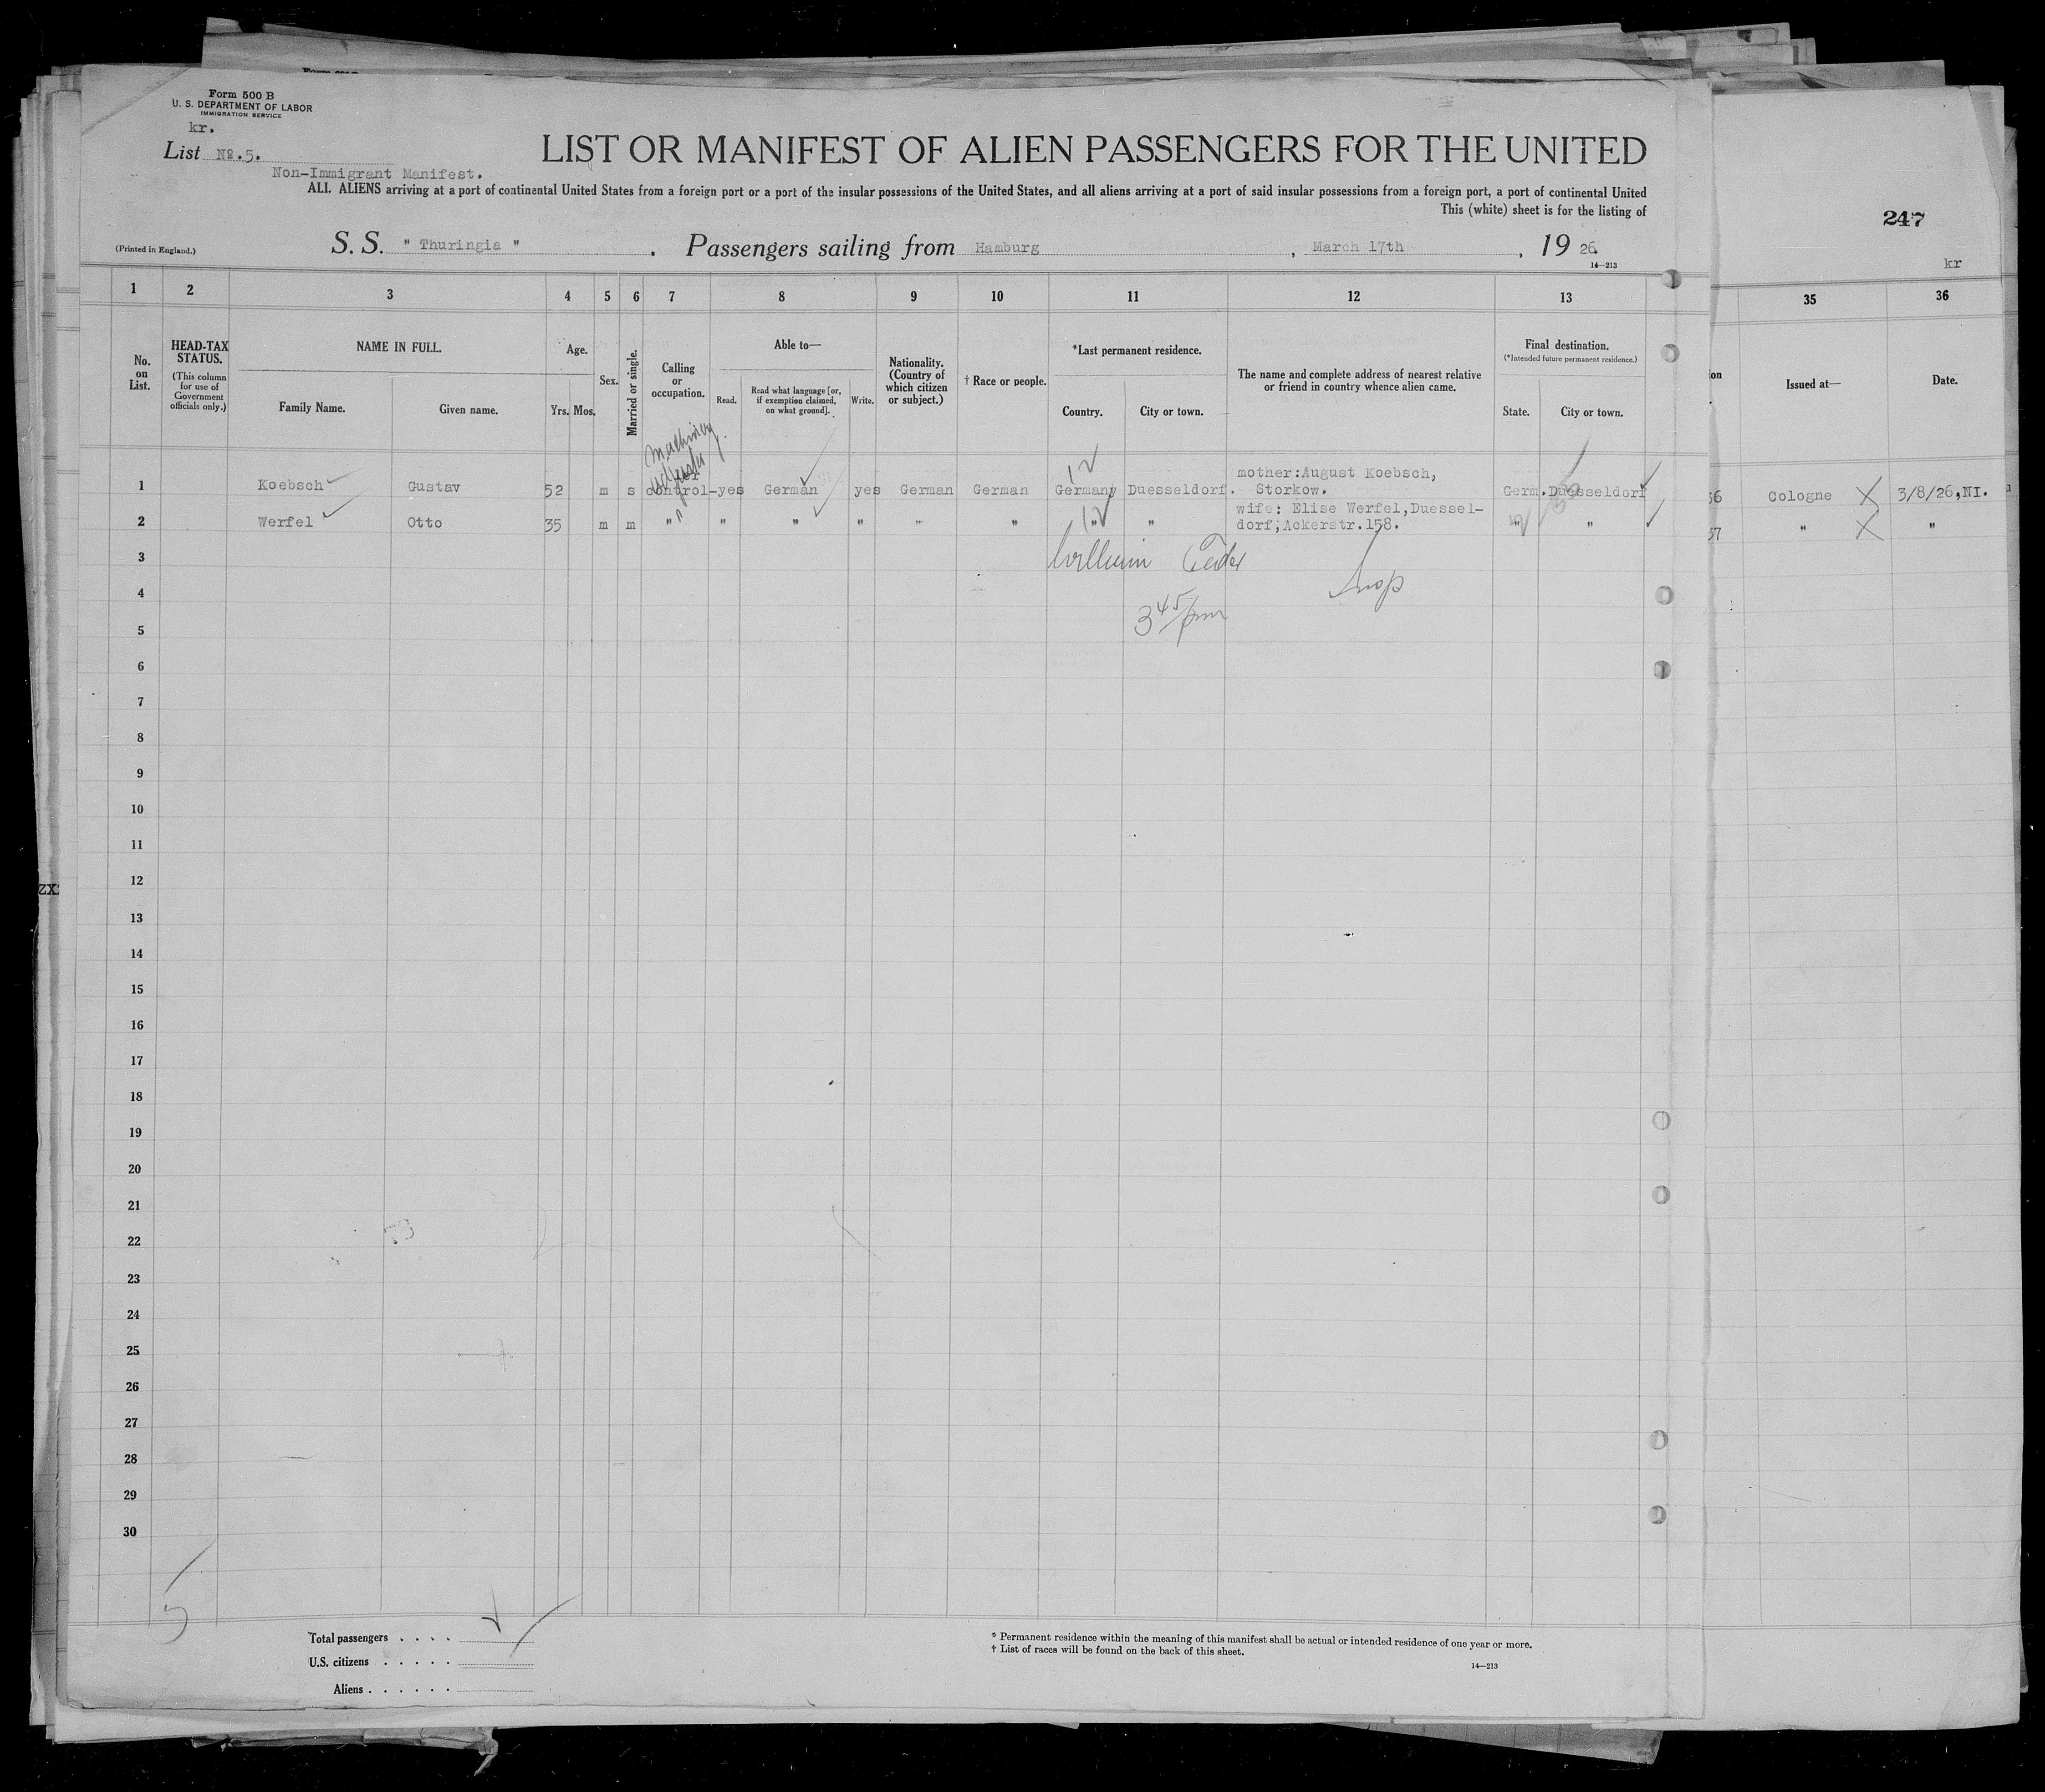 Form 500 B
U. S. DEPARTMENT OF LABOR
IMMIGRATION SERVICE
kr.
List No.5.
Non-Immigrant Manifest.
LIST OR MANIFEST OF ALIEN PASSENGERS FOR THE UNITED
ALL ALIENS arriving at a port of continental United States from a foreign port or a port of the insular possessions of the United States, and all aliens arriving at a port of said insular possessions from a foreign port, a port of continental United
This (white) sheet is for the listing of
247
(Printed in England.)
S. S. " Thuringia " . Passengers sailing from Hamburg , March 17th , 19 26.
14—213
kr
1 2 3 4 5 6 7 8 9 10 11 12 13 35 36
No. on List.
HEAD-TAX STATUS.
(This column for use of Government officials only.)
NAME IN FULL.
Family Name. Given name.
Age.
Yrs. Mos.
Sex.
Married or single.
Calling or occupation.
Able to—
Read. Read what language [or, if exemption claimed, on what ground]. Write.
Nationality. (Country of which citizen or subject.)
† Race or people.
*Last permanent residence.
Country. City or town.
The name and complete address of nearest relative or friend in country whence alien came.
Final destination.
(*Intended future permanent residence.)
State. City or town.
Issued at—
Date.
Machinery
12
1 Koebsch Gustav 52 m s control- yes German yes German German Germany Duesseldorf. mother:August Koebsch, Storkow. Germ. Duesseldorf 56 Cologne 3/8/26,NI.
12
2 Werfel Otto 35 m m " " " " " " " " wife: Elise Werfel,Duesseldorf,Ackerstr.158. " " 57 " "
3 William
4
3 45/pm
5
6
7
8
9
10
11
12
13
14
15
16
17
18
19
20
21
22
23
24
25
26
27
28
29
30
5
Total passengers . . . .
U.S. citizens . . . . .
Aliens . . . . . .
* Permanent residence within the meaning of this manifest shall be actual or intended residence of one year or more.
† List of races will be found on the back of this sheet.
14—213